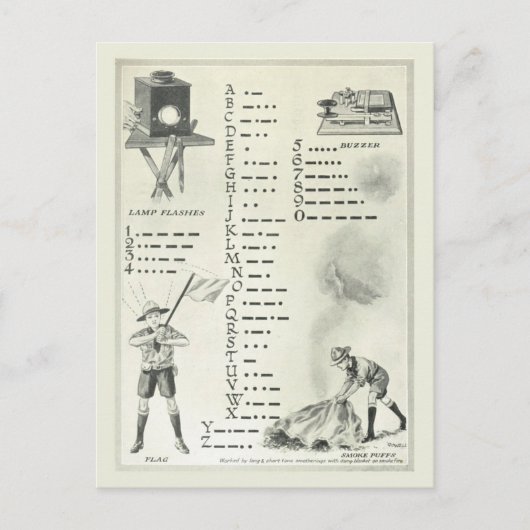 A . —
B — . . .
C — . — .
D — . .
E .
F . . — .
G — — .
H . . . .
I . .
J . — — —
K — . —
L . — . .
M — —
N — .
O — — —
P . — — .
Q — — . —
R . — .
S . . .
T —
U . . —
V . . . —
W . — —
X — . . —
Y — . — —
Z — — . .
LAMP FLASHES
1 . — — — —
2 . . — — —
3 . . . — —
4 . . . . —
FLAG
BUZZER
5 . . . . .
6 — . . . .
7 — — . . .
8 — — — . .
9 — — — — .
0 — — — — —
SMOKE PUFFS
Worked by long & short fane smotherings with damp blanket on smoke fire